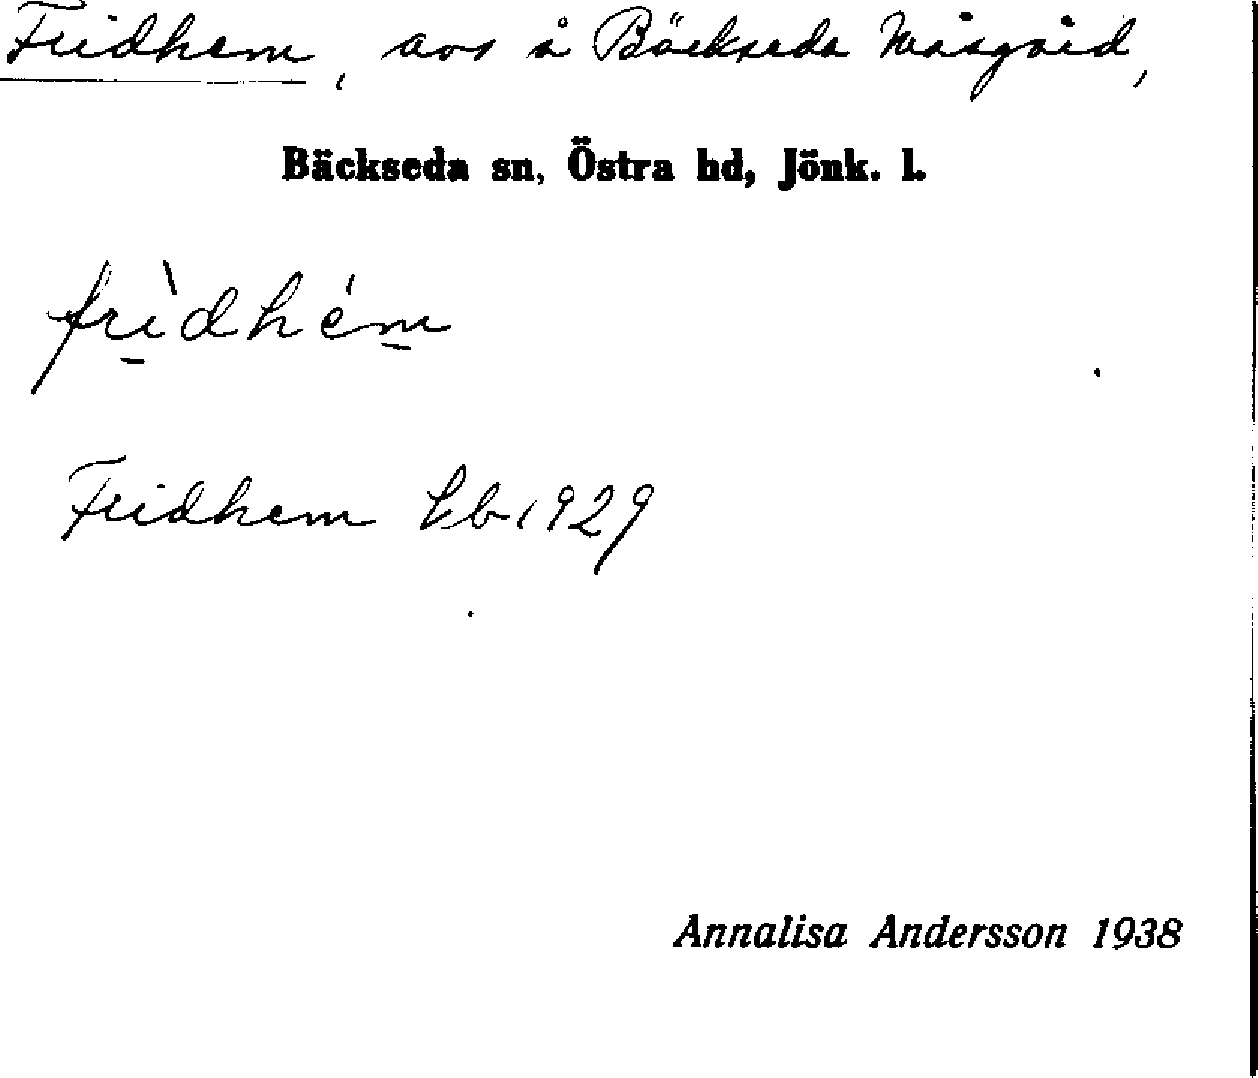 Fridhem, avs å Bäckseda Måsgård,
Bäckseda sn, Östra hd, Jönk. l.
frìdhém
Fridhem kb 1929
Annalisa Andersson 1938